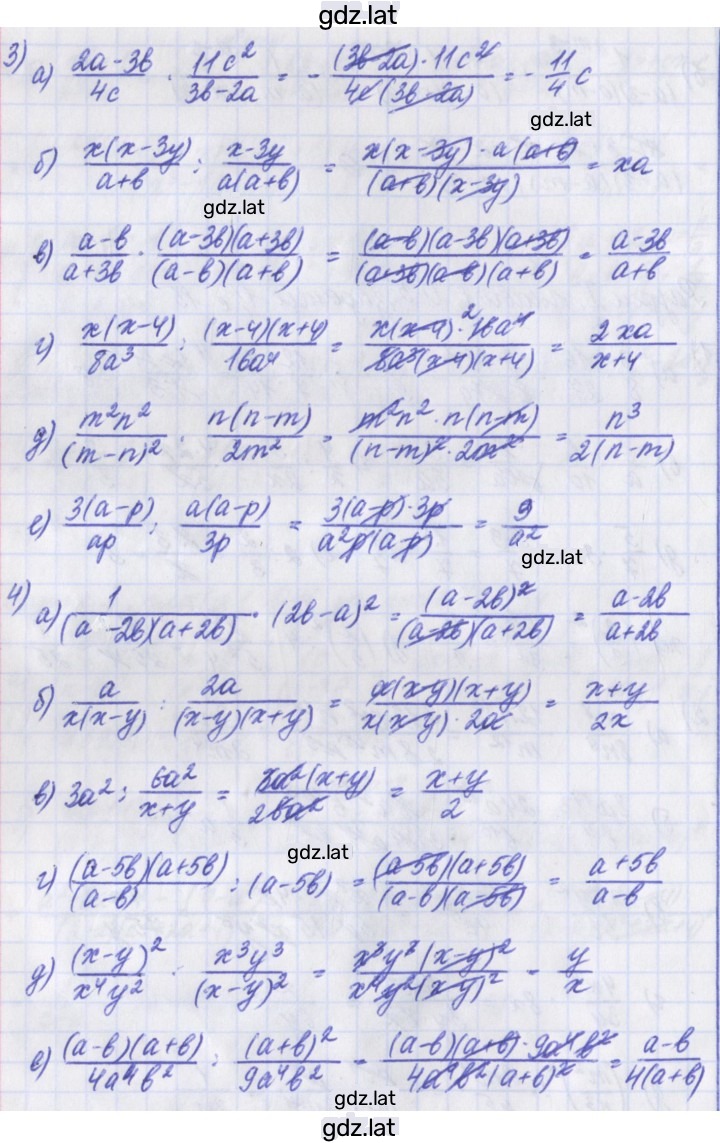 gdz.lat
3) а) (2a-3b)/(4c) · (11c²)/(3b-2a) = - ((3b-2a)·11c²)/(4c(3b-2a)) = - 11/4 c
gdz.lat
б) (x(x-3y))/(a+b) : (x-3y)/(a(a+b)) = (x(x-3y)·a(a+b))/((a+b)(x-3y)) = xa
gdz.lat
в) (a-b)/(a+3b) · ((a-3b)(a+3b))/((a-b)(a+b)) = ((a-b)(a-3b)(a+3b))/((a+3b)(a-b)(a+b)) = (a-3b)/(a+b)
г) (x(x-4))/(8a³) : ((x-4)(x+4))/(16a⁴) = (x(x-4)·²16a⁴)/(8a³(x-4)(x+4)) = (2xa)/(x+4)
д) (m²n²)/((m-n)²) : (n(n-m))/(2m²) = (m²n²·n(n-m))/((n-m)²·2m²) = n³/(2(n-m))
е) (3(a-p))/(ap) : (a(a-p))/(3p) = (3(a-p)·3p)/(a²p(a-p)) = 9/a²
gdz.lat
4) а) 1/((a-2b)(a+2b)) · (2b-a)² = ((a-2b)²)/((a-2b)(a+2b)) = (a-2b)/(a+2b)
б) a/(x(x-y)) : 2a/((x-y)(x+y)) = (a(x-y)(x+y))/(x(x-y)·2a) = (x+y)/(2x)
в) 3a² : (6a²)/(x+y) = (3a²(x+y))/(26a²) = (x+y)/2
gdz.lat
г) ((a-5b)(a+5b))/((a-b)) : (a-5b) = ((a-5b)(a+5b))/((a-b)(a-5b)) = (a+5b)/(a-b)
д) ((x-y)²)/(x⁴y²) · (x³y³)/((x-y)²) = (x³y³(x-y)²)/(x⁴y²(x-y)²) = y/x
е) ((a-b)(a+b))/(4a⁴b²) : ((a+b)²)/(9a⁴b²) = ((a-b)(a+b)·9a⁴b²)/(4a⁴b²(a+b)²) = (a-b)/(4(a+b))
gdz.lat
gdz.lat